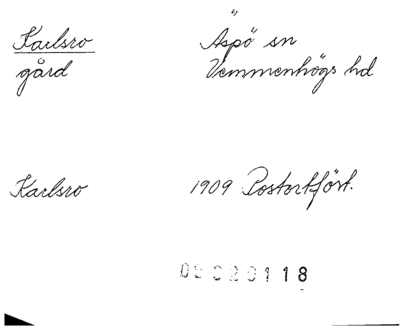 Karlsro Äspö sn
gård Vemmenhögs hd
Karlsro 1909 Postortfört.